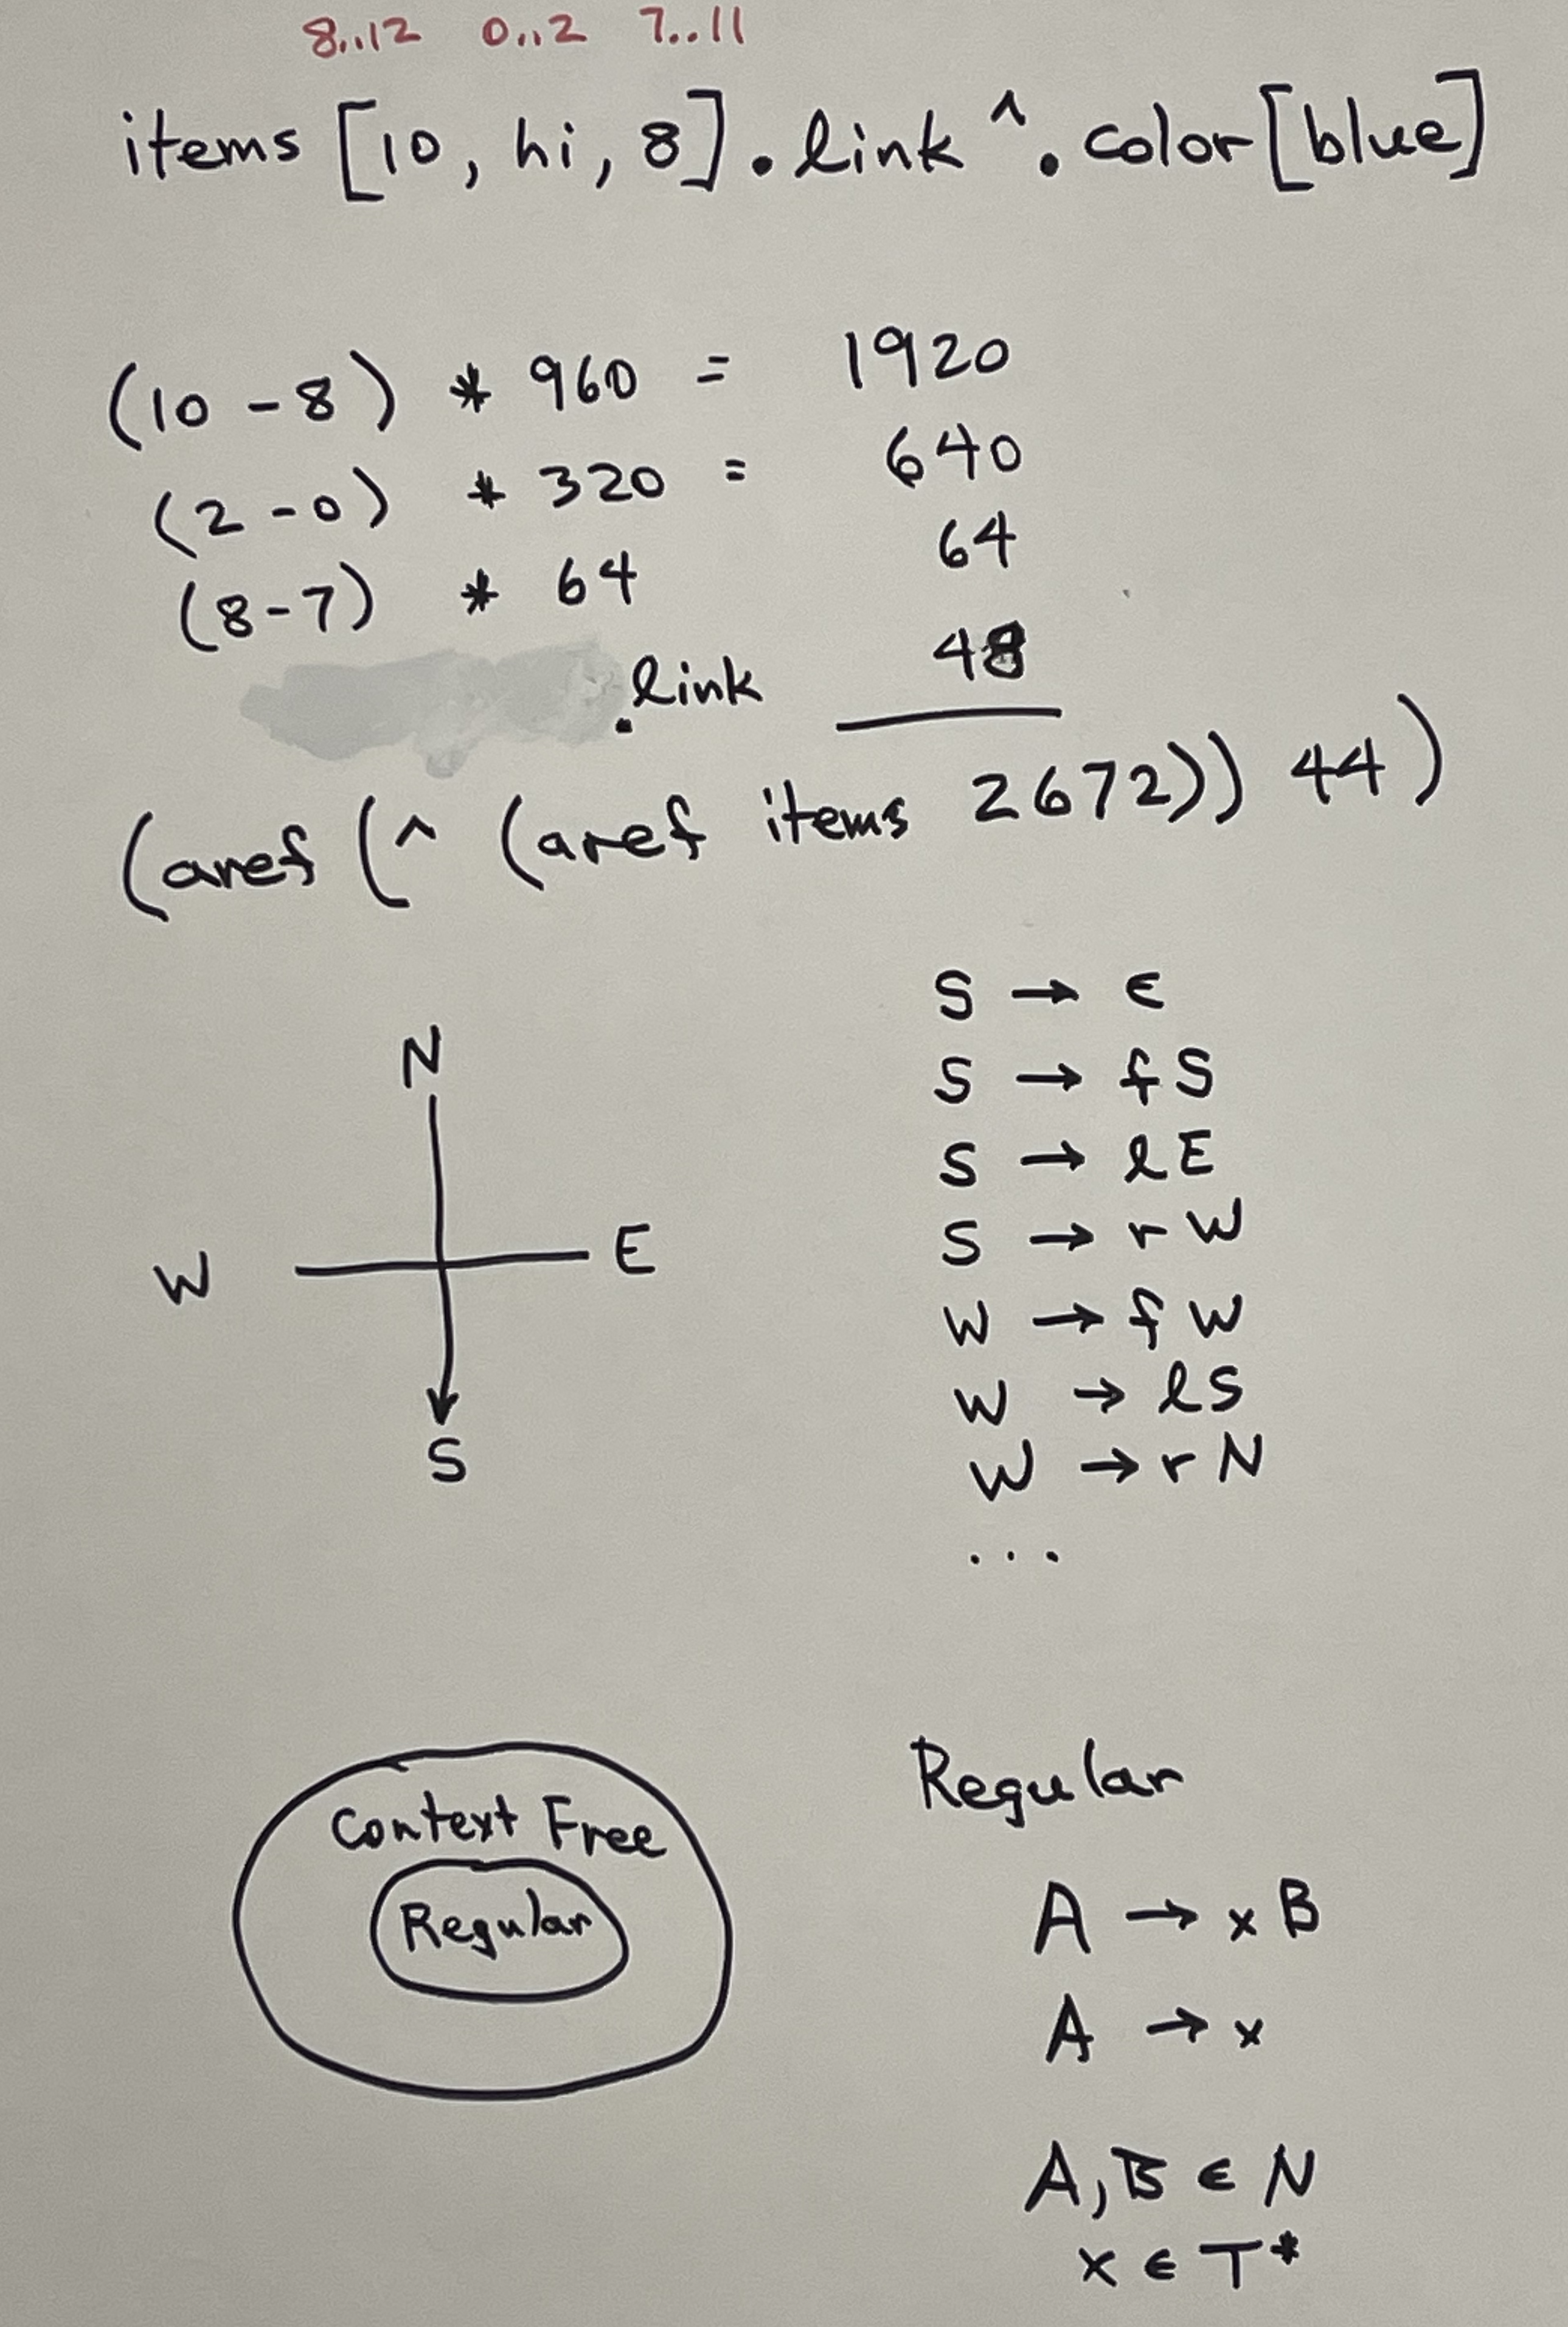 8..12 0..2 7..11
items [10, hi, 8].link ^.color[blue]
(10 - 8) * 960 = 1920
(2 - 0) * 320 = 640
(8 - 7) * 64 64
.link 48
(aref (^ (aref items 2672)) 44)
S → ϵ
S → f S
S → l E
S → r W
W → f W
W → l S
W → r N
...
N
W E
S
Context Free
Regular
Regular
A → x B
A → x
A, B ϵ N
x ϵ T*